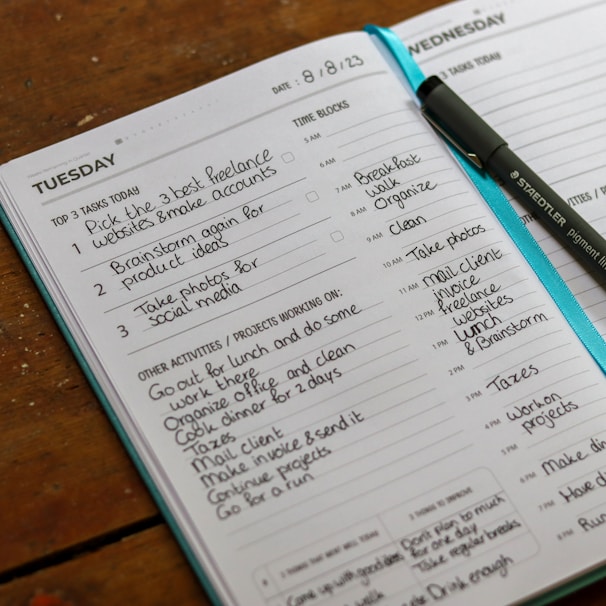 TUESDAY
DATE : 8/8/23
TOP 3 TASKS TODAY
1 Pick the 3 best freelance
websites & make accounts
2 Brainstorm again for
product ideas
3 Take photos for
social media
OTHER ACTIVITIES / PROJECTS WORKING ON:
Go out for lunch and do some
work there
Organize office and clean
Cook dinner for 2 days
Taxes
Mail client
Make invoice & send it
Continue projects
Go for a run
TIME BLOCKS
5 AM
6 AM
7 AM Breakfast
walk
8 AM Organize
9 AM clean
10 AM Take photos
11 AM Mail client
invoice
12 PM freelance
websites
1 PM Lunch
& Brainstorm
2 PM
3 PM Taxes
4 PM Work on
projects
5 PM
6 PM Make din
7 PM Have di
8 PM Run
3 THINGS THAT WENT WELL TODAY
Came up with good
walk
3 THINGS TO IMPROVE
Don't plan to much
for one day
Take regular breaks
Drink enough
WEDNESDAY
3 TASKS TODAY
OTHER ACTIVITIES / PR
STAEDTLER
pigment lin